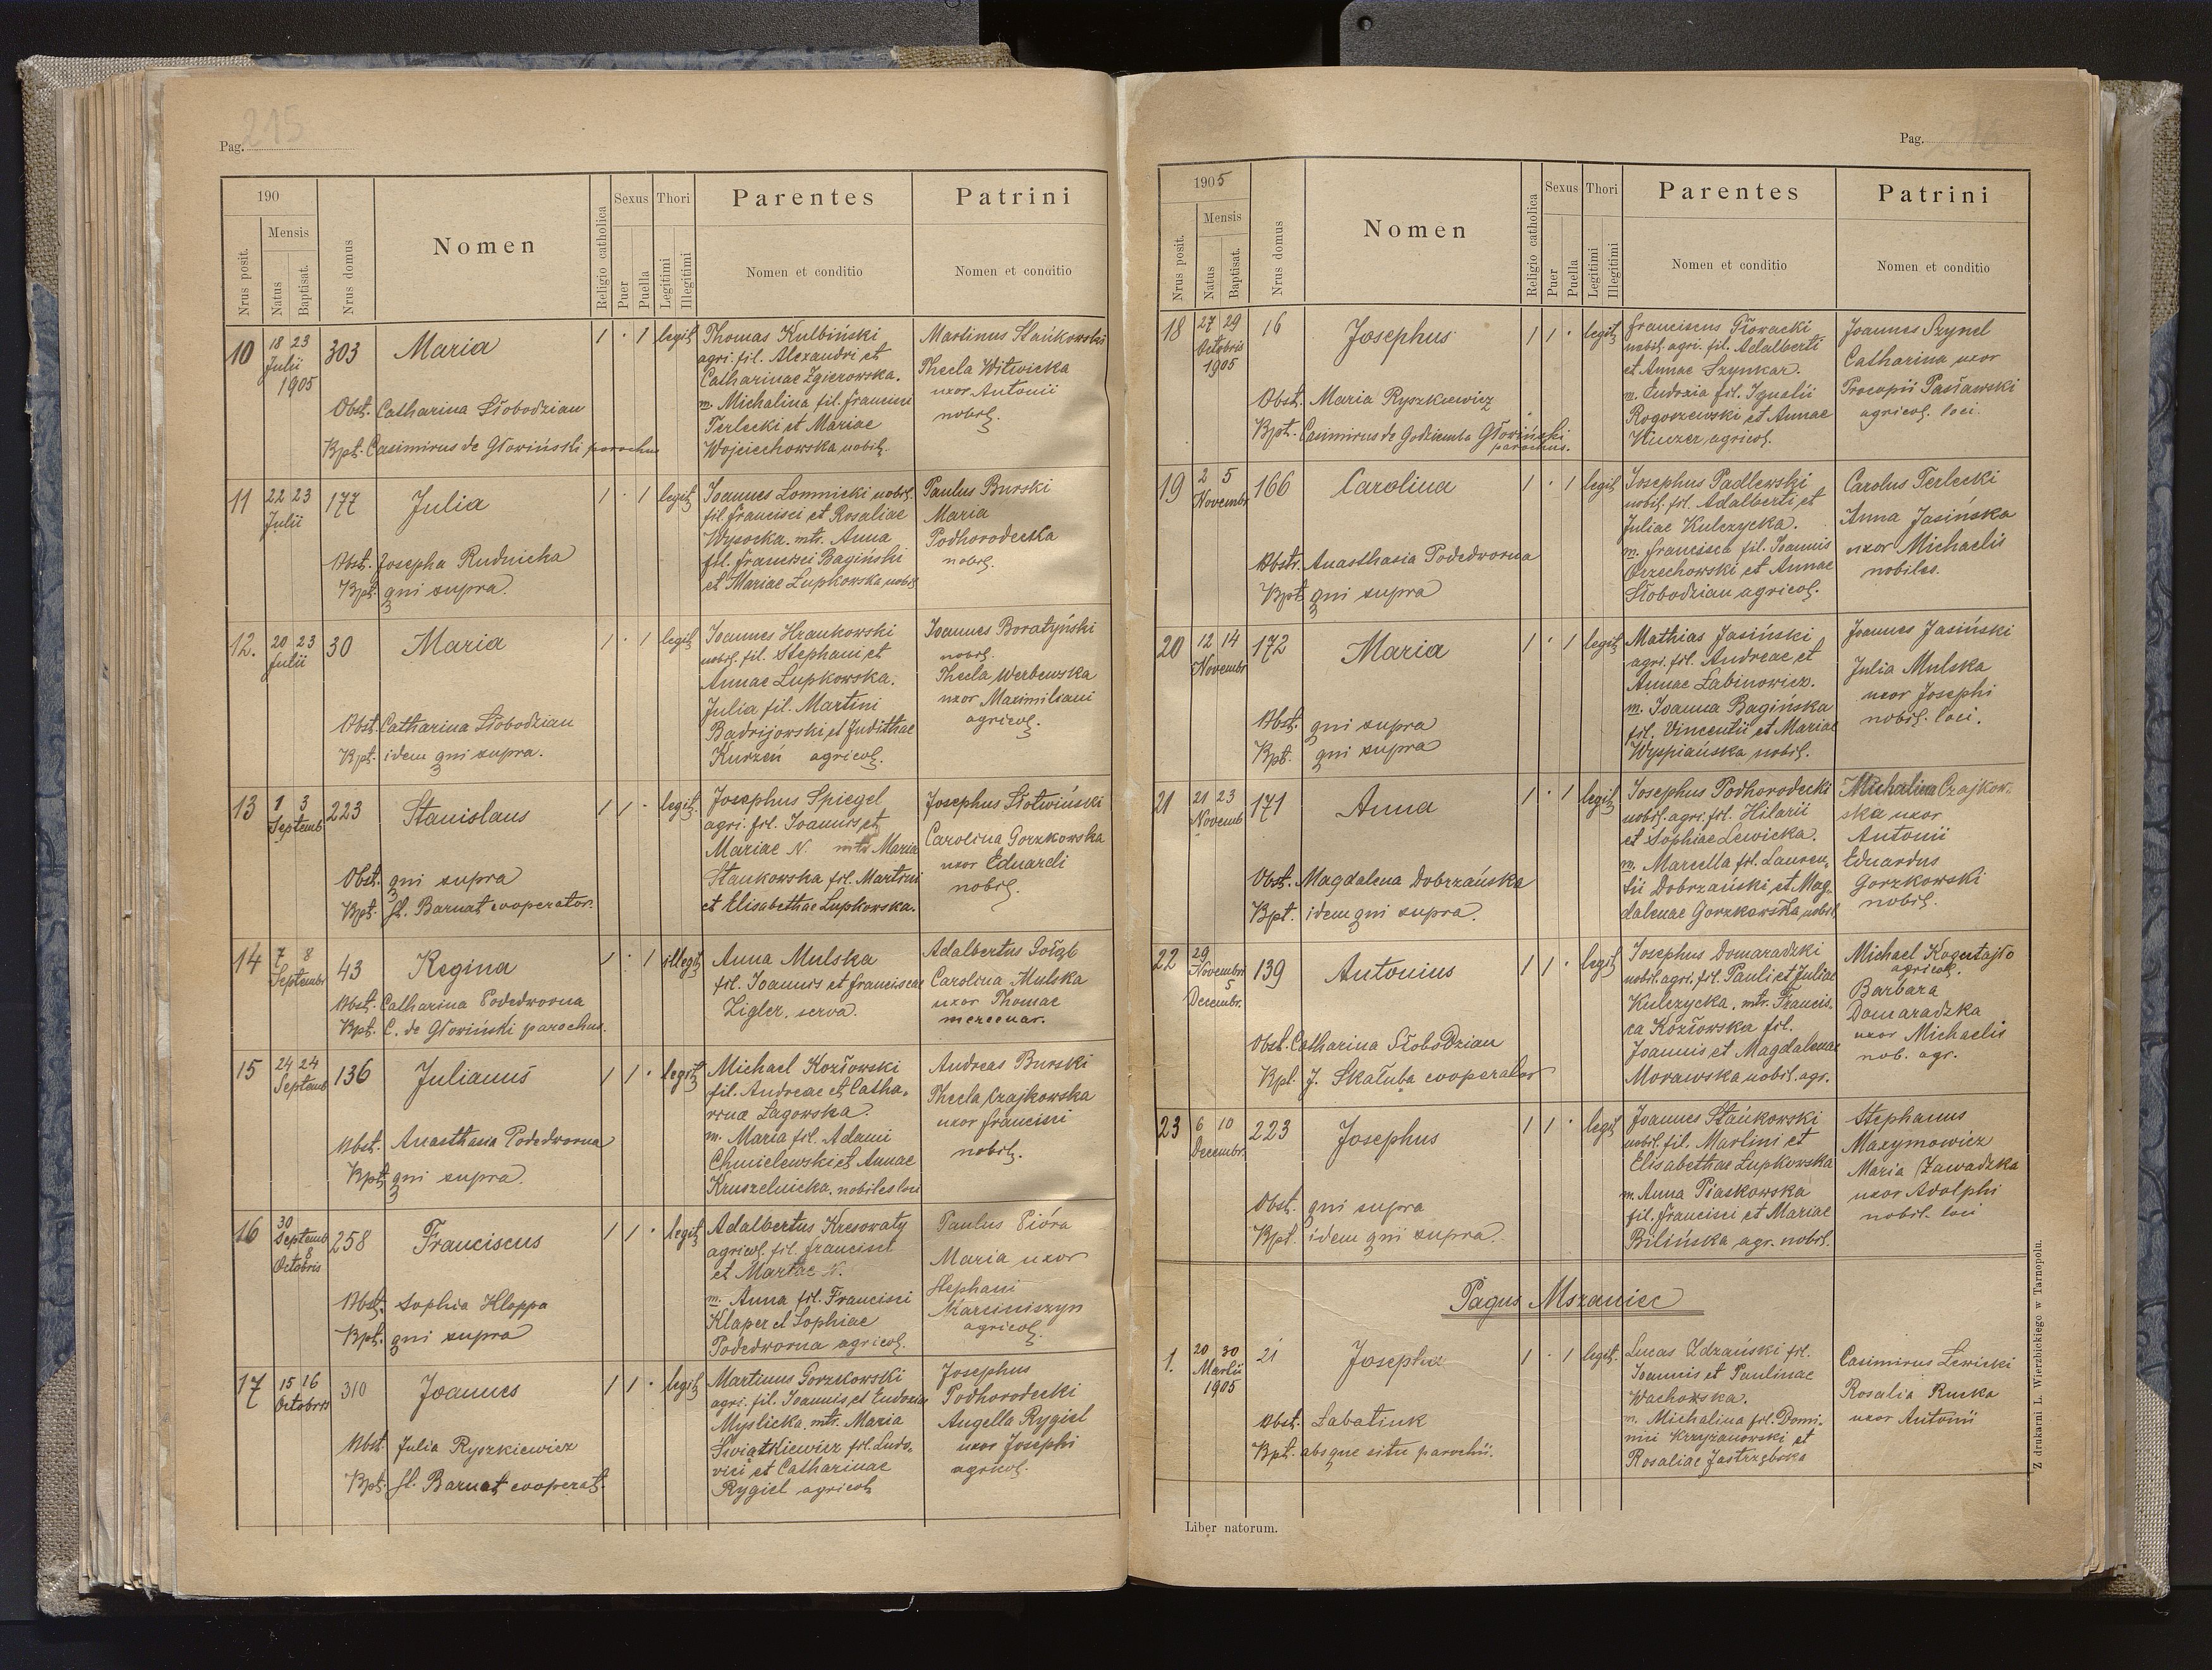 Pag. 215
190
Nrus posit.
Mensis
Natus
Baptisat.
Nrus domus
Nomen
Religio catholica
Sexus
Puer
Puella
Thori
Legitimi
Illegitimi
Parentes
Nomen et conditio
Patrini
Nomen et conditio
10
18 23
Julii
1905
303
Maria
1 · 1 legit
Obst. Catharina Słobodzian
Bpt. Casimirus de Głowiński parochus
Thomas Kulbiński
agri. fil. Alexandri et
Catharinae Zgierowska.
m. Michalina fil. Francisci
Terlecki et Mariae
Wojciechowska nobil.
Martinus Stańkowski
Thecla Witwicka
uxor Antonii
nobil.
11
22 23
Julii
177
Julia
1 · 1 legit
Obst. Josepha Rudnicha
Bpt. qui supra
Joannes Lomnicki nobil.
fil. Francisci et Rosaliae
Wysocka. mtr. Anna
fil. Francisci Bagiński
et Mariae Łupkowska nobil
Paulus Burski
Maria
Podhorodecka
nobil.
12.
20 23
Julii
30
Maria
1 · 1 legit
Obst. Catharina Słobodzian
Bpt. idem qui supra.
Joannes Hrankowski
nobil. fil. Stephani et
Annae Łupkowska.
Julia fil. Martini
Badrijowski et Judithae
Kurzeń agricol.
Joannes Boratyński
nobil.
Thecla Werbenska
uxor Maximiliani
agricol.
13
1 3
Septemb
223
Stanislaus
1 1 · legit.
Obst. qui supra
Bpt. Sl. Barnat cooperator.
Josephus Spiegel
agri. fil. Joannis et
Mariae N. mtr Maria
Stankowska fil. Martini
et Elisabethae Łupkowska.
Josephus Słotwiński
Carolina Gorzkowska
uxor Eduardi
nobil.
14
7 8
Septembr
43
Regina
1 · 1 illegit
Obst. Catharina Podedworna
Bpt. C. de Głowiński parochus.
Anna Mulska
fil. Joannis et Franciscae
Zigler. serva.
Adalbertus Gołąb
Carolina Mulska
uxor Thomae
mercenar.
15
24 24
Septemb
136
Julianus
1 1 · legit
Obst. Anasthasia Podedworna
Bpt. qui supra
Michael Kozłowski
fil. Andreae et Catha-
rinae Łagowska.
m. Maria fil. Adami
Chmielewski et Annae
Kruszelnicka, nobiles loci
Andreas Burski
Thecla Czajkowska
uxor Francisci
nobil.
16
30
Septemb
8
Octobris
258
Franciscus
1 1 · legit
Obst. Sophia Kloppa
Bpt. qui supra
Adalbertus Kresowaty
agricol. fil. Francisci
et Martae N.
m. Anna fil. Francisci
Klaper et Sophiae
Podedworna agricol.
Paulus Pióra
Maria uxor
Stephani
Marciniszyn
agricol.
17
15 16
Octobris
310
Joannes
1 1 · legit
Obst. Julia Ryszkiewicz
Bpt. Sl. Barnat cooperat.
Martinus Gorzkowski
agri. fil. Joannis et Eudoxiae
Myslicka. mtr. Maria
Świątkiewicz fil. Ludo-
vici et Catharinae
Rygiel agricol
Josephus
Podhorodecki
Angella Rygiel
uxor Josephi
agricol.
Pag.
1905
Nrus posit.
Mensis
Natus
Baptisat.
Nrus domus
Nomen
Religio catholica
Sexus
Puer
Puella
Thori
Legitimi
Illegitimi
Parentes
Nomen et conditio
Patrini
Nomen et conditio
18
27 29
Octobris
1905
16
Josephus
1 1 · legit
Obst. Maria Ryszkiewicz
Bpt. Casimirus de Godziemba Głowiński
parochus.
Franciscus Głowacki
nobil. agri. fil. Adalberti
et Annae Szynkar.
m. Eudoxia fil. Ignatii
Rogoszewski et Annae
Winzer, agricol.
Joannes Szynel
Catharina uxor
Procopii Pasławski
agricol. loci.
19
2 5
Novembr
166
Carolina
1 · 1 legit
Obstr. Anasthasia Podedworna
Bpt qui supra
Josephus Padlewski
nobil. fil. Adalberti et
Juliae Kulczycka.
m. Francisca fil. Joannis
Orzechowski et Annae
Słobodzian agricol.
Carolus Terlecki
Anna Jasińska
uxor Michaelis
nobiles.
20
12 14
Novembr
172
Maria
1 · 1 legit
Obst. qui supra
Bpt. qui supra
Mathias Jasiński
agri. fil. Andreae et
Annae Łabinowicz.
m. Joanna Bagińska
fil. Vincentii et Mariae
Wyspiańska nobil.
Joannes Jasiński
Julia Mulska
uxor Josephi
nobil. loci.
21
21 23
Novemb
171
Anna
1 · 1 legit
Obst. Magdalena Dobrzańska
Bpt. idem qui supra.
Josephus Podhorodecki
nobil. agri. fil. Hilarii
et Sophiae Lewicka.
m. Marcella fil. Lauren-
tii Dobrzański et Mag-
dalenae Gorzkowska nobil.
Michalina Czajkow-
ska uxor
Antonii
Eduardus
Gorzkowski
nobil.
22
29
Novembr
5
Decembr.
139
Antonius
1 1 · legit
Obst. Catharina SłoboDzian
Bpt. J. Skałuba cooperator
Josephus Domaradzki
nobil. agri. fil. Pauli et Juliae
Kulczycka, mtr. Francis-
ca Kozłowska fil.
Joannis et Magdalenae
Morawska nobil. agr.
Michael Kogutajło
agricol.
Barbara
Domaradzka
uxor Michaelis
nob. agr.
23
6 10
Decembr.
223
Josephus
1 1 · legit
Obst. qui supra
Bpt. idem qui supra.
Joannes Stańkowski
nobil. fil. Martini et
Elisabethae Łupkowska
m. Anna Piaskowska
fil. Francisci et Mariae
Bilińska agr. nobil.
Stephanus
Maxymowicz
Maria Zawadzka
uxor Adolphi
nobil. loci
Pagus Mszaniec
1.
20 30
Martii
1905
21
Josepha
1 · 1 legit.
Obst. Łabatiuk
Bpt. absque situ parochi.
Lucas Zdzański fil.
Joannis et Paulinae
Wachowska.
m. Michalina fil. Domi-
nici Krzyżanowski et
Rosaliae Jastrzębska
Casimirus Lewicki
Rosalia Rucka
uxor Antonii
Liber natorum.
Z drukarni L. Wierzbickiego w Tarnopolu.